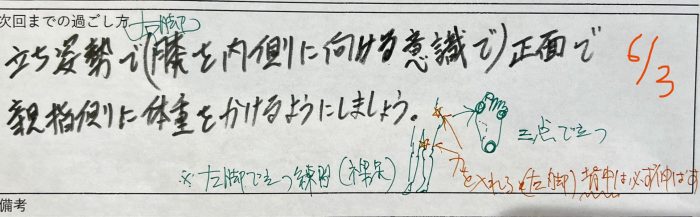 次回までの過ごし方
立ち姿勢で(膝を内側に向ける意識で)正面で
6/3
親指側に体重をかけるようにしましょう。
三点で立つ
※左脚で立つ練習(裸足)
力を入れる(左脚)背中は必ず伸ばす
備考